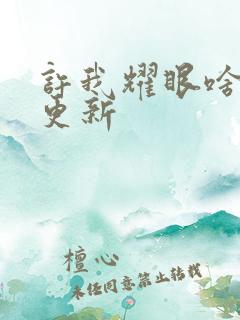 許我耀眼啥
更新
檀心
未经同意禁止转载